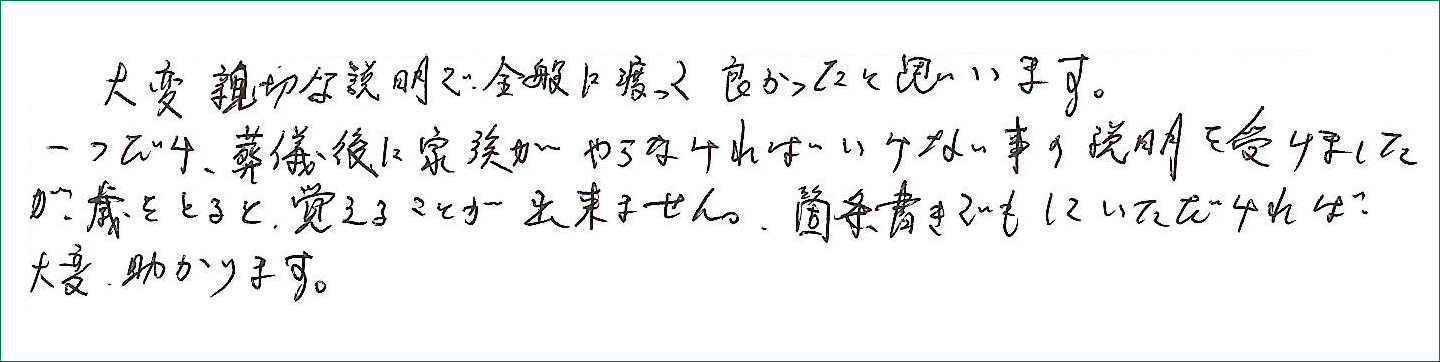 大変親切な説明で、全般に渡って良かったと思います。
一つだけ、葬儀後に家族がやらなければいけない事の説明を受けました
が、歳をとると、覚えることが出来ません。箇条書きでもしていただければ
大変、助かります。